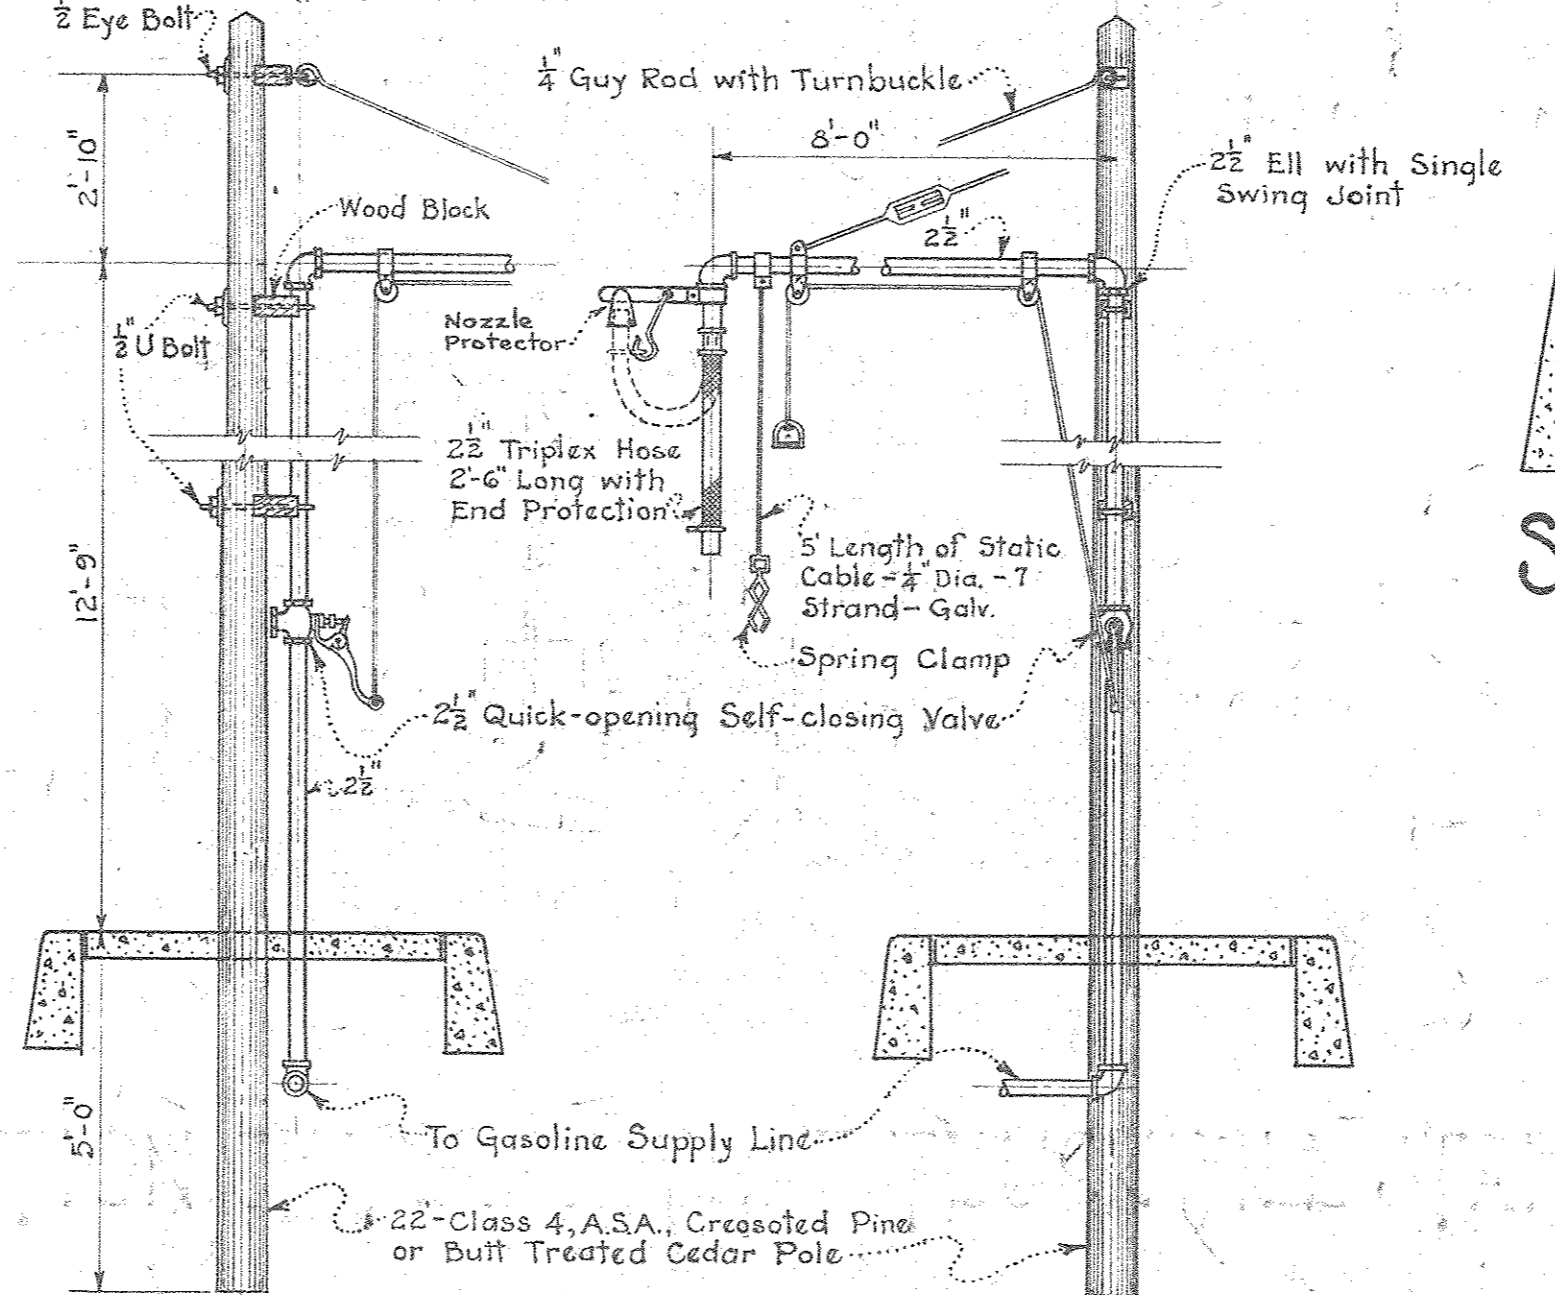 ½ Eye Bolt
¼" Guy Rod with Turnbuckle
8'-0"
2½" Ell with Single
Swing Joint
2'-10"
Wood Block
2½"
½" U Bolt
Nozzle
Protector
2½" Triplex Hose
2'-6" Long with
End Protection
5' Length of Static
Cable - ¼" Dia. - 7
Strand - Galv.
12'-9"
Spring Clamp
2½" Quick-opening Self-closing Valve
2½"
5'-0"
To Gasoline Supply Line
22'-Class 4, A.S.A., Creosoted Pine
or Butt Treated Cedar Pole
S